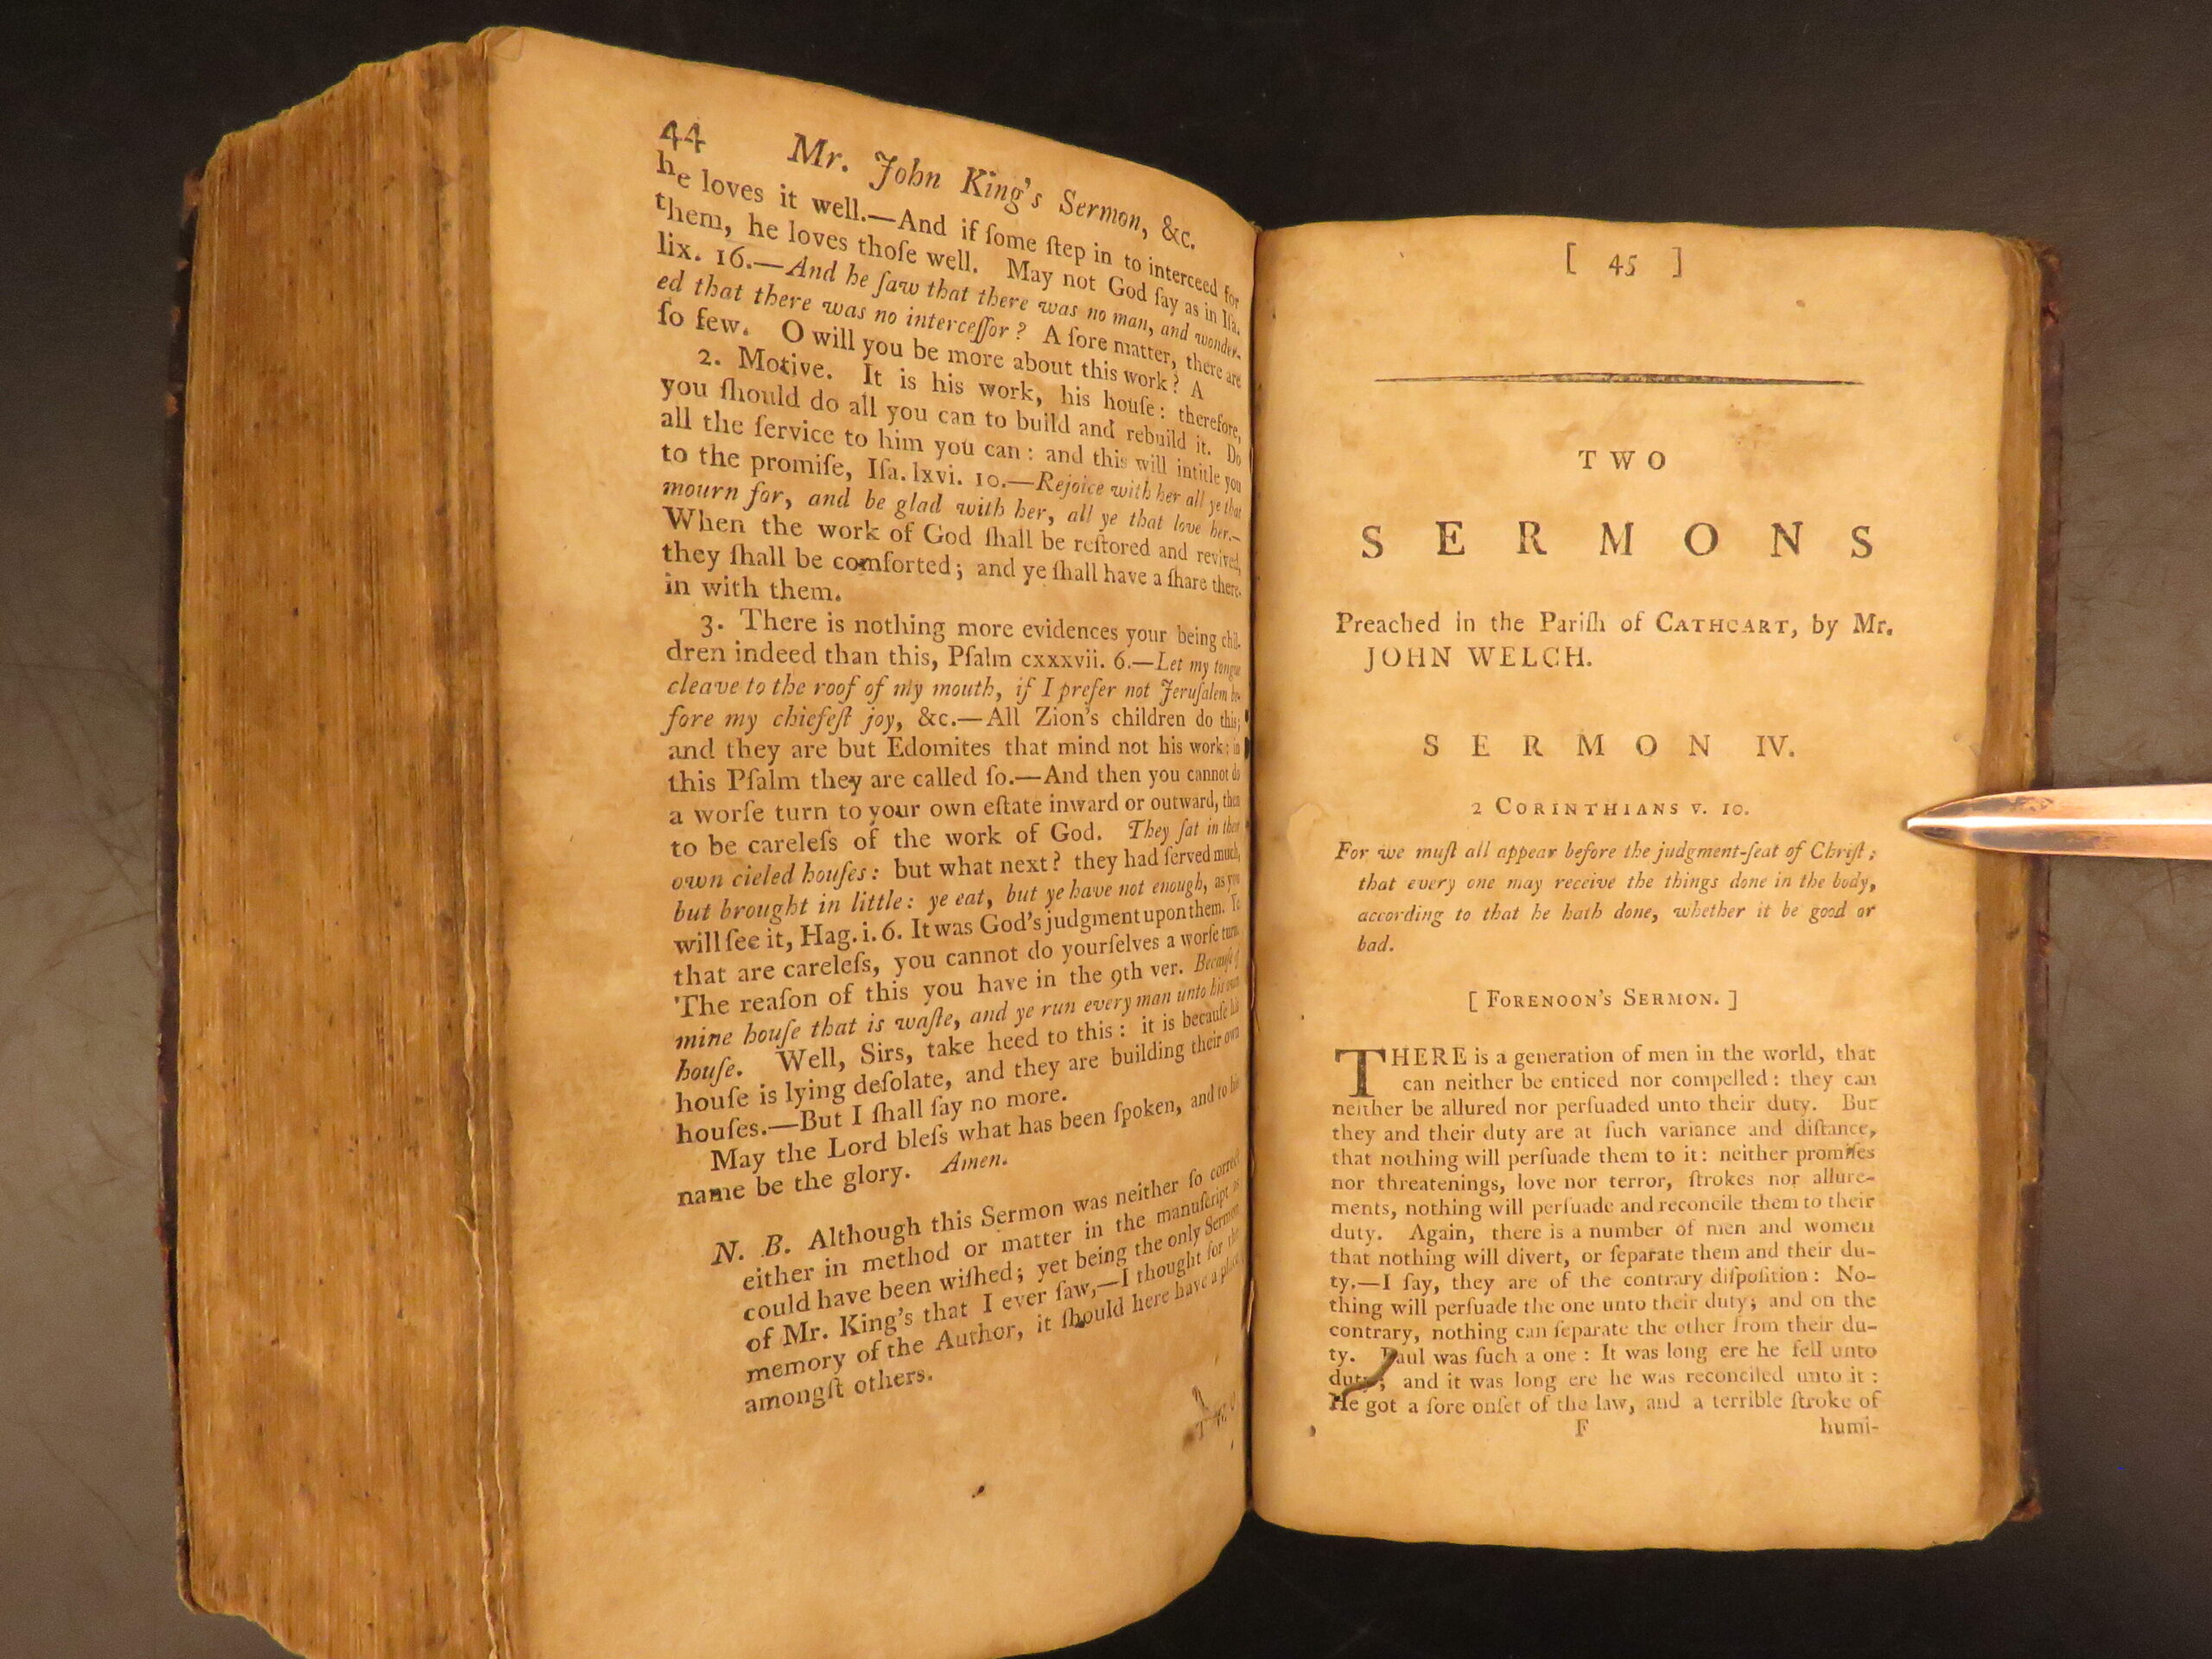 44 Mr. John King's Sermon, &c.
he loves it well.—And if ſome ſtep in to interceed for
them, he loves thoſe well. May not God ſay as in Iſa.
lix. 16.—And he ſaw that there was no man, and wonder-
ed that there was no interceſſor? A ſore matter, there are
ſo few. O will you be more about this work? A
2. Motive. It is his work, his houſe: therefore,
you ſhould do all you can to build and rebuild it. Do
all the ſervice to him you can: and this will intitle you
to the promiſe, Iſa. lxvi. 10.—Rejoice with her all ye that
mourn for, and be glad with her, all ye that love her.—
When the work of God ſhall be reſtored and revived,
they ſhall be comforted; and ye ſhall have a ſhare there-
in with them.
3. There is nothing more evidences your being chil-
dren indeed than this, Pſalm cxxxvii. 6.—Let my tongue
cleave to the roof of my mouth, if I prefer not Jeruſalem be-
fore my chiefeſt joy, &c.—All Zion's children do this;
and they are but Edomites that mind not his work: in
this Pſalm they are called ſo.—And then you cannot do
a worſe turn to your own eſtate inward or outward, then
to be careleſs of the work of God. They ſat in their
own cieled houſes: but what next? they had ſerved much,
but brought in little: ye eat, but ye have not enough, as you
will ſee it, Hag. i. 6. It was God's judgment upon them. Ye
that are careleſs, you cannot do yourſelves a worſe turn.
The reaſon of this you have in the 9th ver. Becauſe of
mine houſe that is waſte, and ye run every man unto his own
houſe. Well, Sirs, take heed to this: it is becauſe his
houſe is lying deſolate, and they are building their own
houſes.—But I ſhall ſay no more.
May the Lord bleſs what has been ſpoken, and to his
name be the glory. Amen.
N. B. Although this Sermon was neither ſo correct
either in method or matter in the manuſcript as
could have been wiſhed; yet being the only Sermon
of Mr. King's that I ever ſaw,—I thought for the
memory of the Author, it ſhould here have a place
amongſt others.
[ 45 ]
TWO
SERMONS
Preached in the Pariſh of CATHCART, by Mr.
JOHN WELCH.
SERMON IV.
2 CORINTHIANS v. 10.
For we muſt all appear before the judgment-ſeat of Chriſt;
that every one may receive the things done in the body,
according to that he hath done, whether it be good or
bad.
[ FORENOON'S SERMON. ]
THERE is a generation of men in the world, that
can neither be enticed nor compelled: they can
neither be allured nor perſuaded unto their duty. But
they and their duty are at ſuch variance and diſtance,
that nothing will perſuade them to it: neither promiſes
nor threatenings, love nor terror, ſtrokes nor allure-
ments, nothing will perſuade and reconcile them to their
duty. Again, there is a number of men and women
that nothing will divert, or ſeparate them and their du-
ty.—I ſay, they are of the contrary diſpoſition: No-
thing will perſuade the one unto their duty; and on the
contrary, nothing can ſeparate the other from their du-
ty. Paul was ſuch a one: It was long ere he fell unto
duty; and it was long ere he was reconciled unto it:
He got a ſore onſet of the law, and a terrible ſtroke of
F humi-